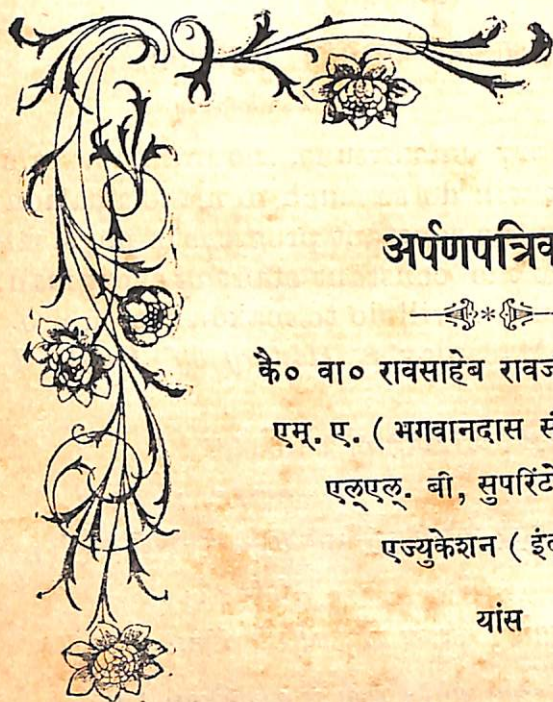 अर्पणपत्रिक
कै० वा० रावसाहेब रावज
एम्. ए. ( भगवानदास सं
एल्एल्. बी, सुपरिंटें
एज्युकेशन ( इं
यांस